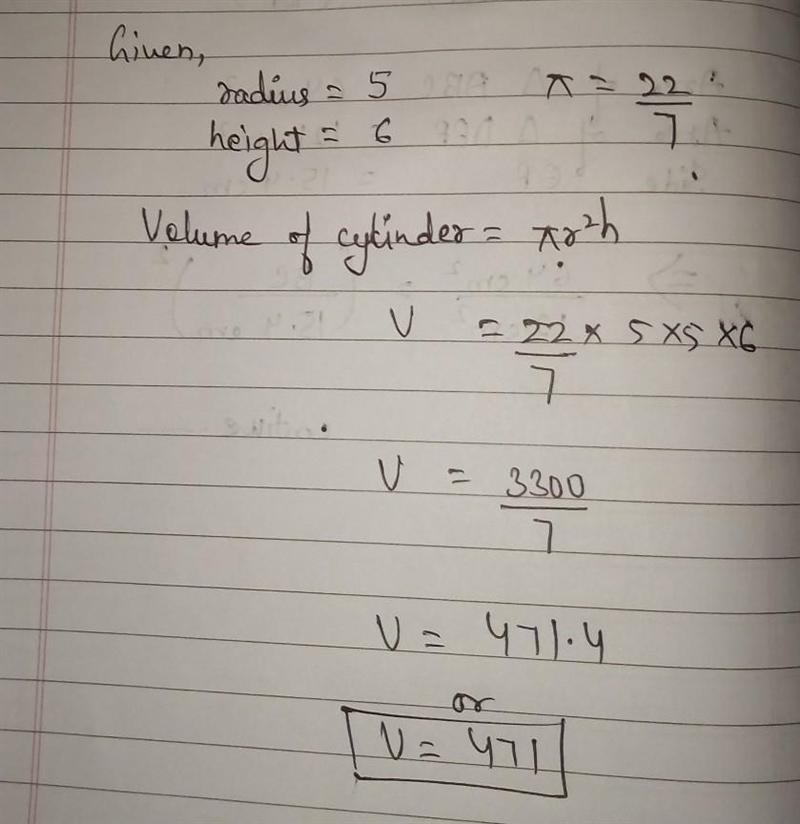 Given,
radius = 5 π = 22/7
height = 6
Volume of cylinder = πr²h
V = 22/7 × 5 × 5 × 6
V = 3300/7
V = 471.4
or
V = 471